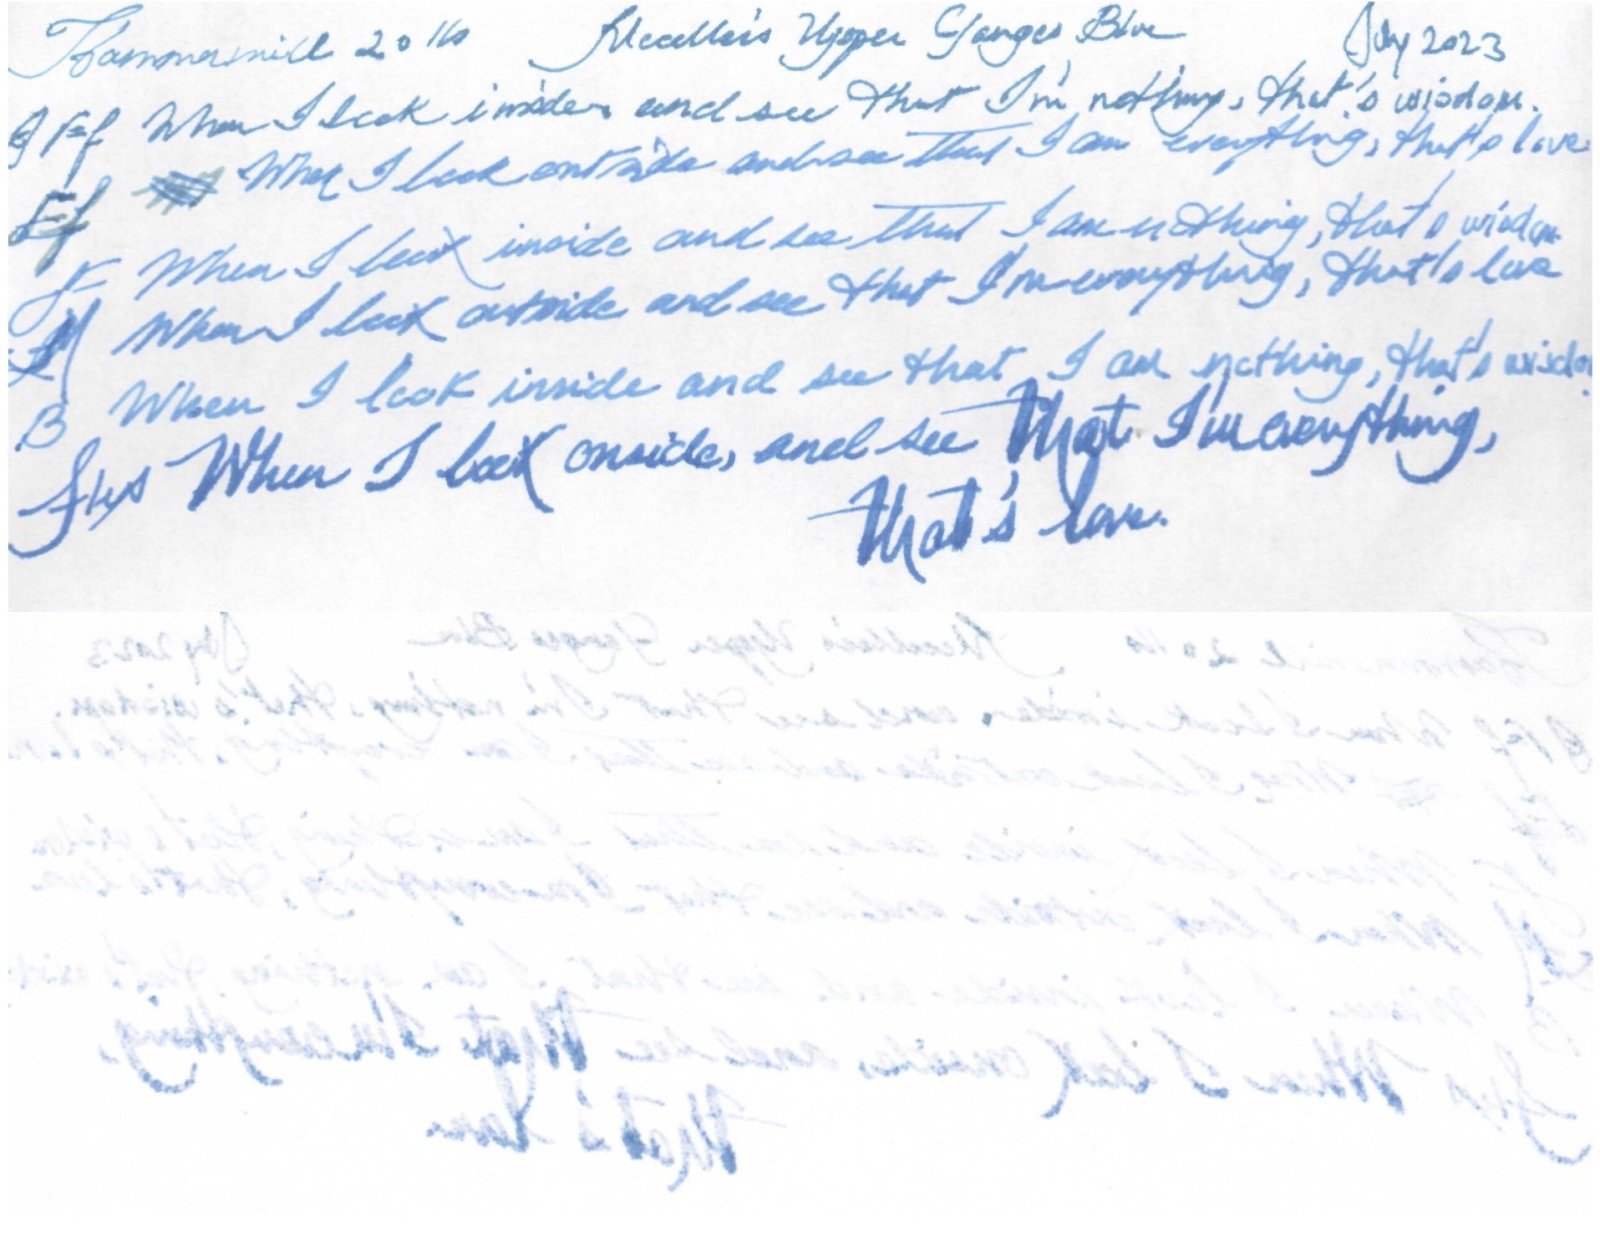 Hammermill 20 lb Noodler's Upper Ganges Blue July 2023
EF When I look inside, and see that I'm nothing, that's wisdom.
EF When I look outside and see that I am everything, that's love
F When I look inside and see that I am nothing, that's wisdom
M When I look outside and see that I'm everything, that's love
B When I look inside and see that I am nothing, that's wisdom
When I look onside, and see that I'm everything,
that's love.